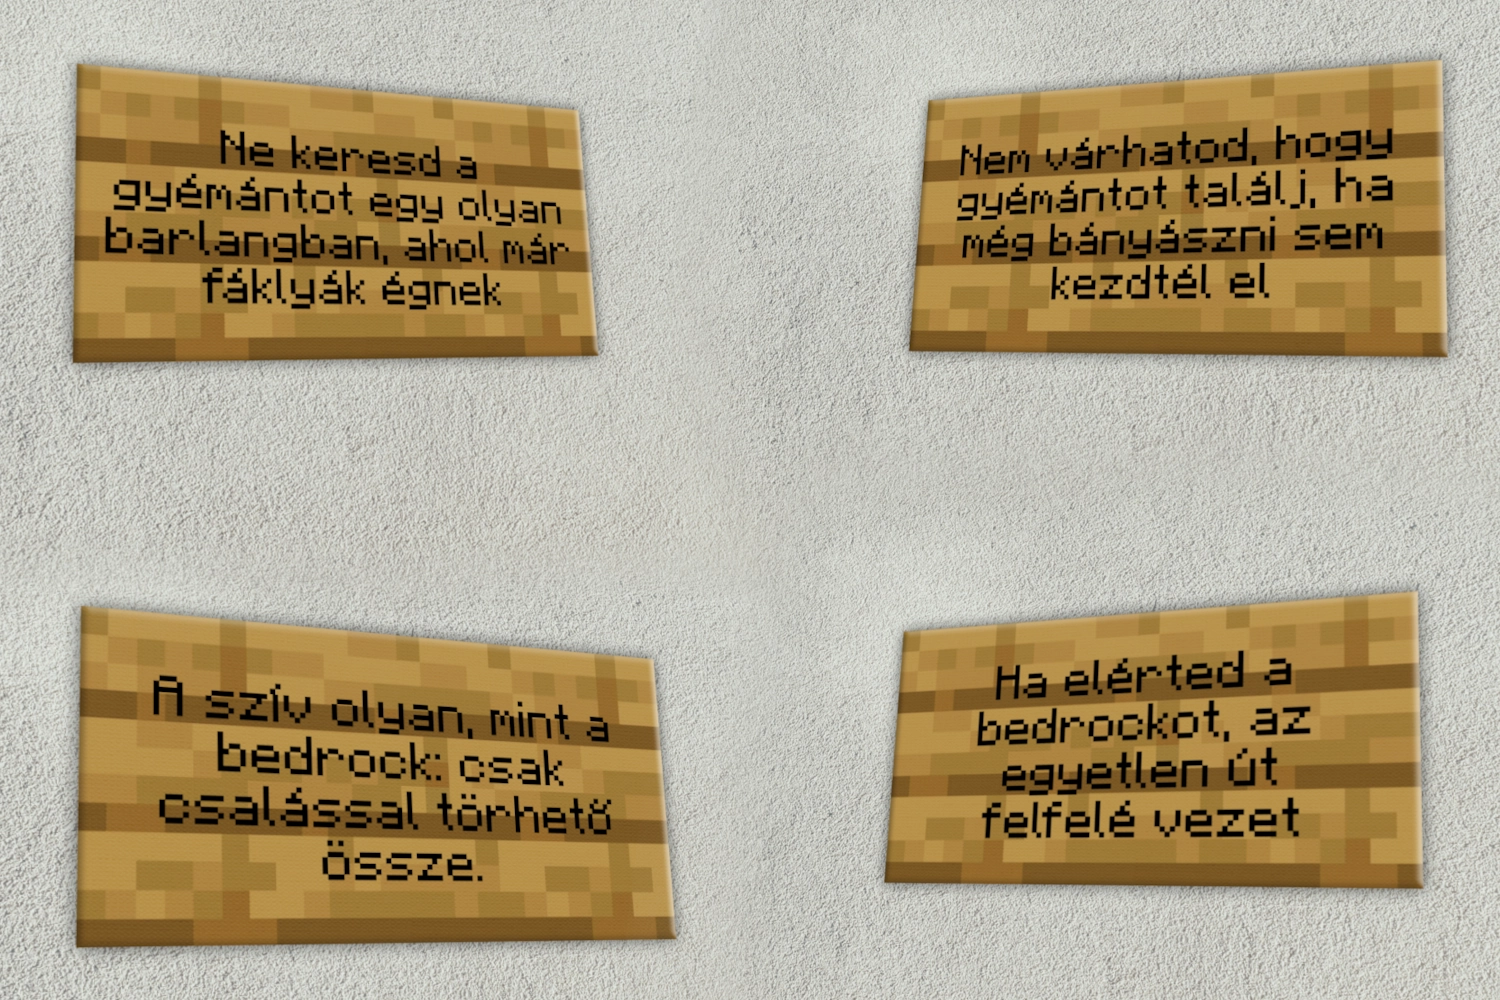 Ne keresd a
gyémántot egy olyan
barlangban, ahol már
fáklyák égnek
Nem várhatod, hogy
gyémántot találj, ha
még bányászni sem
kezdtél el
A szív olyan, mint a
bedrock: csak
csalással törhető
össze.
Ha elérted a
bedrockot, az
egyetlen út
felfelé vezet